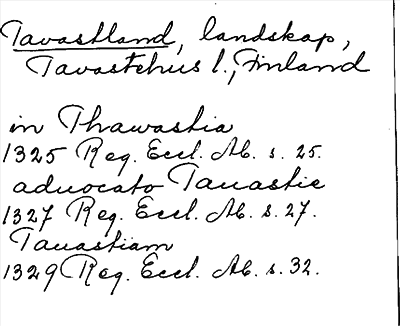 Tavastland, landskap,
Tavastehus l., Finland
in Thawastia
1325 Reg. Eccl. Ab. s. 25.
aduocato Tauastie
1327 Reg. Eccl. Ab. s. 27.
Tauastiam
1329 Reg. Eccl. Ab. s. 32.